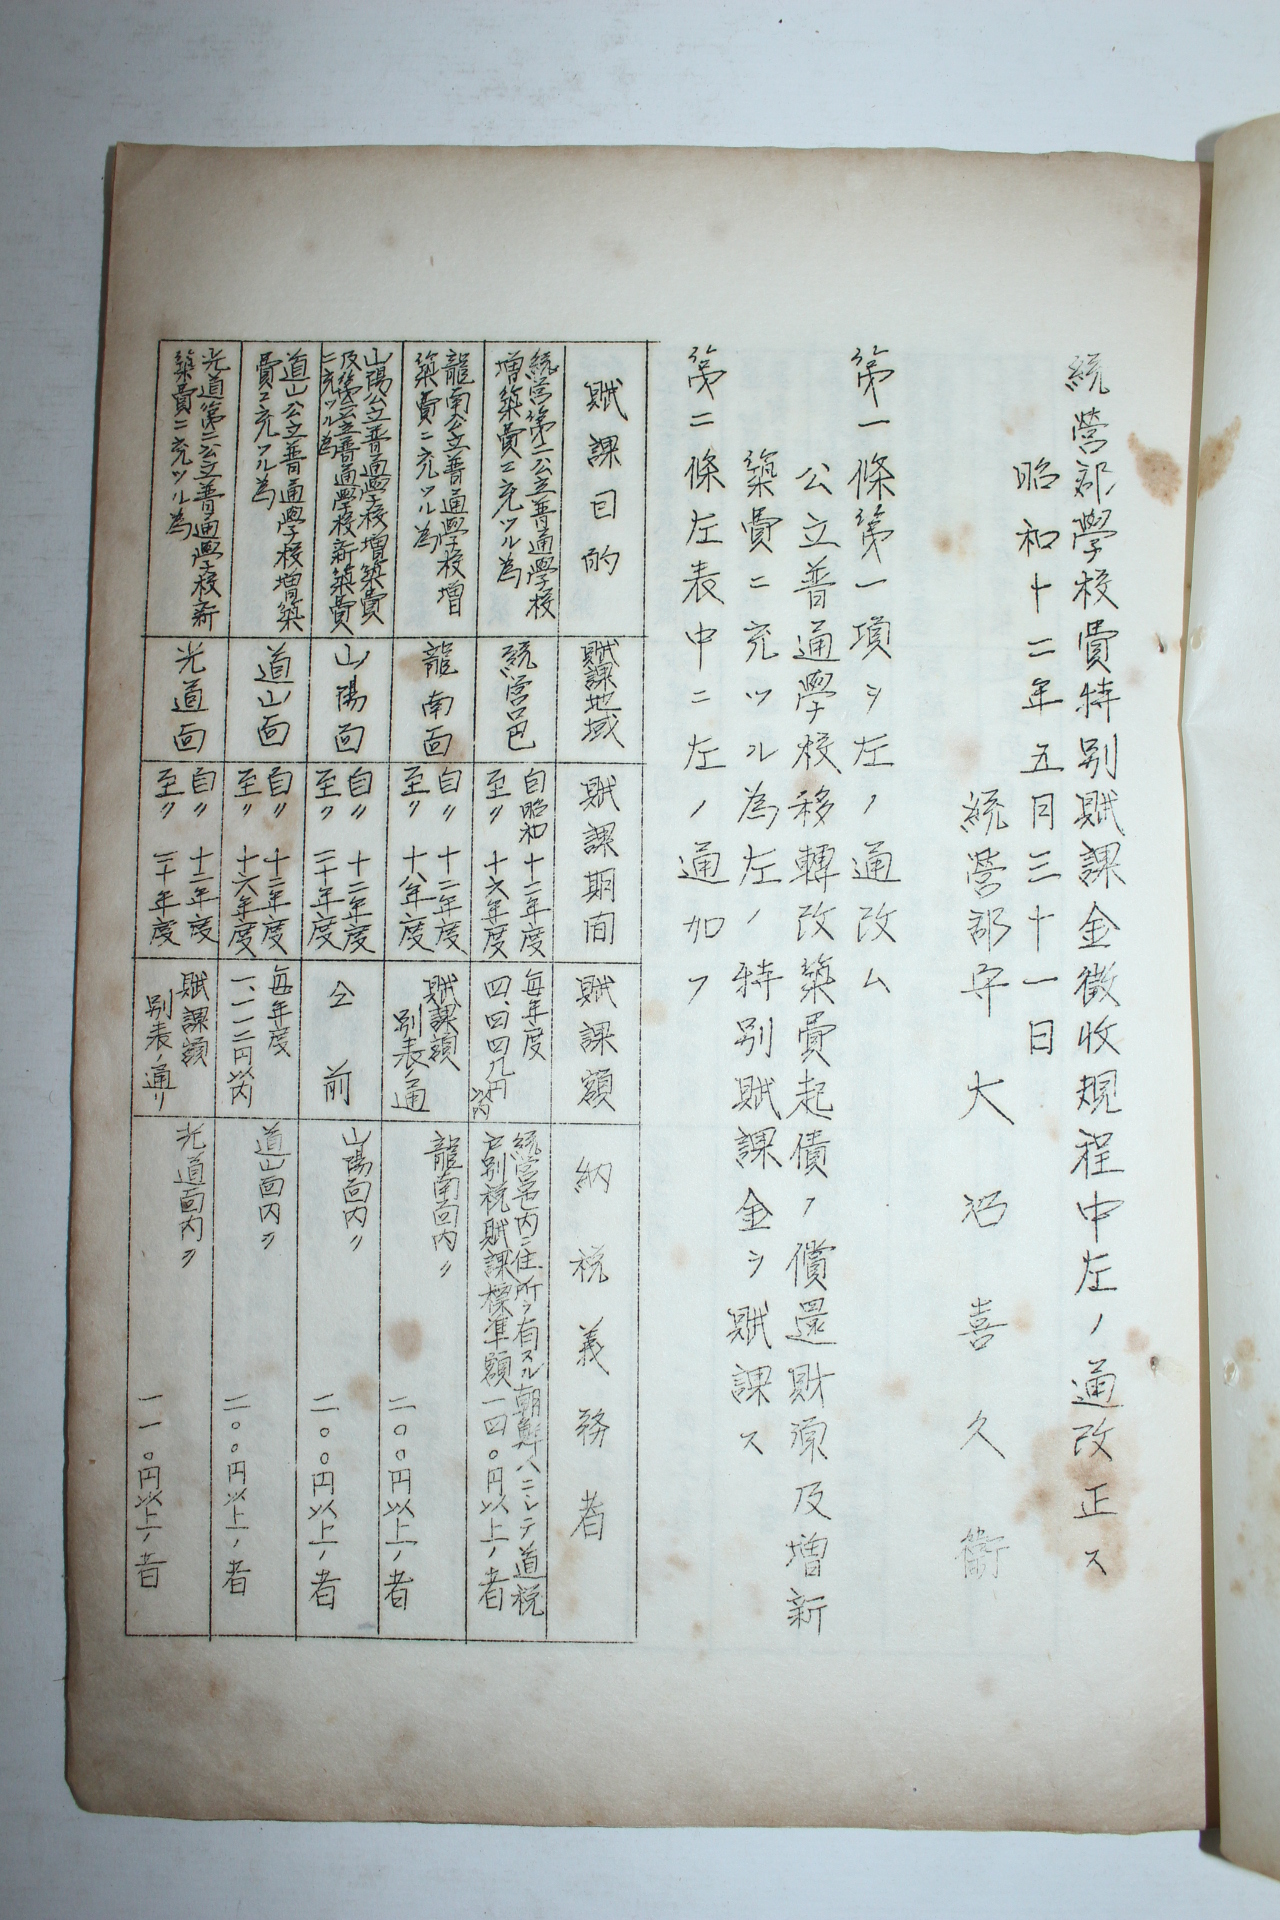 統營郡學校費特別賦課金徵收規程中左ノ通改正ス
昭和十二年五月三十一日
統營郡守 大沼喜久衞
第一條第一項ヲ左ノ通改ム
公立普通學校移轉改築費起債ノ償還財源及增新
築費ニ充ツル為左ノ特別賦課金ヲ賦課ス
第二條左表中ニ左ノ通加フ
賦課目的
賦課地域
賦課期間
賦課額
納税義務者
統營第二公立普通學校
增築費ニ充ツル為
統營邑
自昭和十二年度
至〃十六年度
每年度
四、四四九円以內
統營邑內ニ住所ヲ有スル朝鮮人ニシテ道税
戶別税賦課標準額一四〇円以上ノ者
龍南公立普通學校增
築費ニ充ツル為
龍南面
自〃十二年度
至〃十八年度
賦課額
別表ノ通
龍南面內〃
二〇〇円以上ノ者
山陽公立普通學校增築費
及第二公立普通學校新築費
ニ充ツル為
山陽面
自〃十二年度
至〃二十年度
仝前
山陽面內〃
二〇〇円以上ノ者
道山公立普通學校增築
費ニ充ツル為
道山面
自〃十二年度
至〃十六年度
每年度
一、一一二円以內
道山面內〃
二〇〇円以上ノ者
光道第二公立普通學校新
築費ニ充ツル為
光道面
自〃十二年度
至〃二十年度
賦課額
別表ノ通リ
光道面內〃
一一〇円以上ノ者